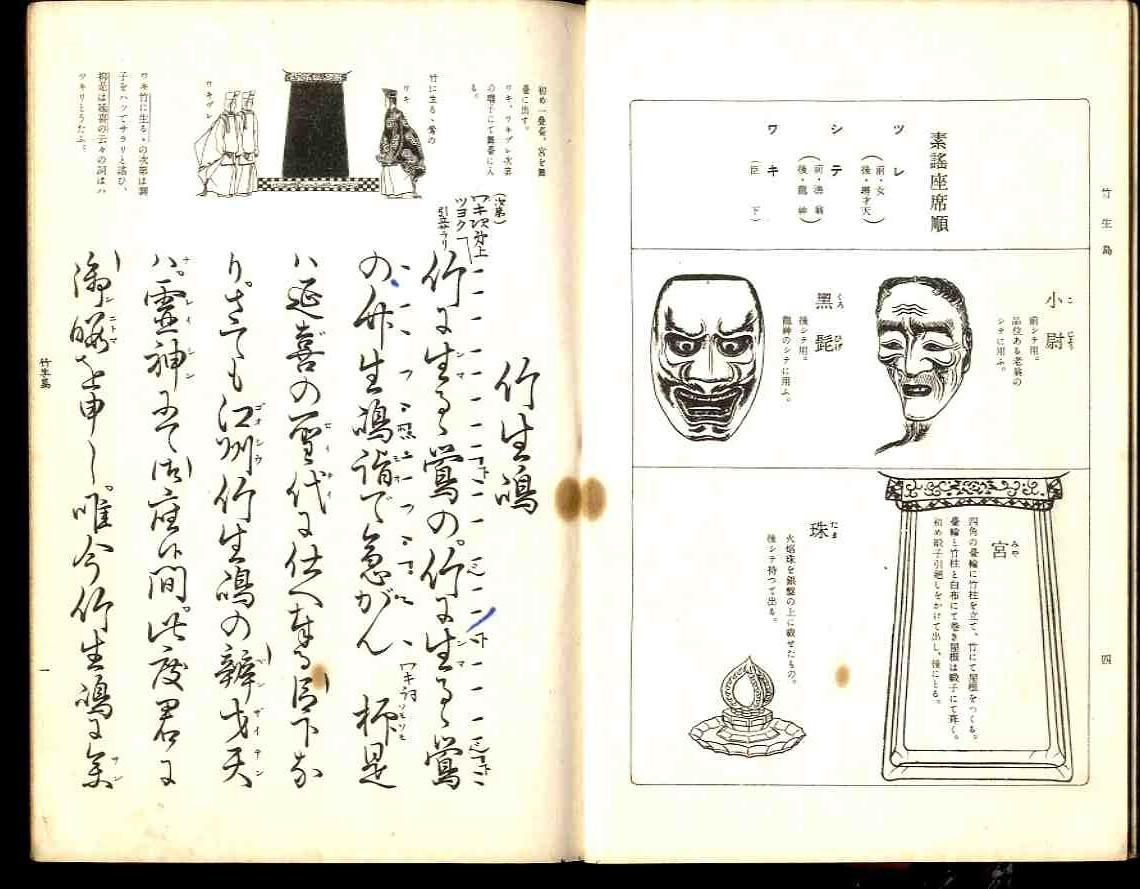 竹生島
四
素謠座席順
ツレ
(前・女
後・辨才天)
シテ
(前・漁翁
後・龍神)
ワキ
(臣下)
小尉
こじょう
前シテ用。
品位ある老翁の
シテに用ふ。
黑髭
くろひげ
後シテ用。
龍神のシテに用ふ。
宮
みや
四角の臺輪に竹柱を立て、竹にて屋根をつくる。
臺輪と竹柱と白布にて卷き屋根は緞子にて葺く。
初め緞子引廻しをかけて出し、後にとる。
珠
たま
火焰珠を銀盤の上に載せたもの。
後シテ持つて出る。
初め一疊臺、宮を舞
臺に出す。
ワキ、ワキヅレ次第
の囃子にて舞臺に入
る。
竹に生るゝ鶯の
ワキ
ワキヅレ
ワキ竹に生るゝの次第は調
子をハッてサラリと謠ひ、
抑是は延喜の云々の詞はハ
ッキリとうたふ。
竹生嶋
(次第)
ワキ次第上
ツヨク
竹に生るゝ鶯の。竹に生るゝ鶯
の、竹生嶋詣で急がん
ワキヲ
抑是
ハ延喜の聖代に仕へ奉る臣下な
り。さても江州竹生嶋の辨才天
ハ。靈神にて御座候間。此度君に
御暇を申し。唯今竹生嶋に參
竹生島
一